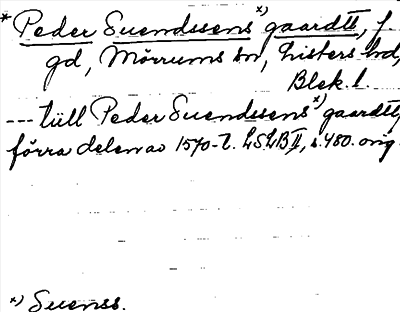 * Peder Suendssens x) gaardtt, f
gd, Mörrums sn, Listers hd,
Blek. l.
--- till Peder Suendssens x) gaardtt,
förra delen av 1570-t. LSLB II, s. 480. orig.
x) Suenss.